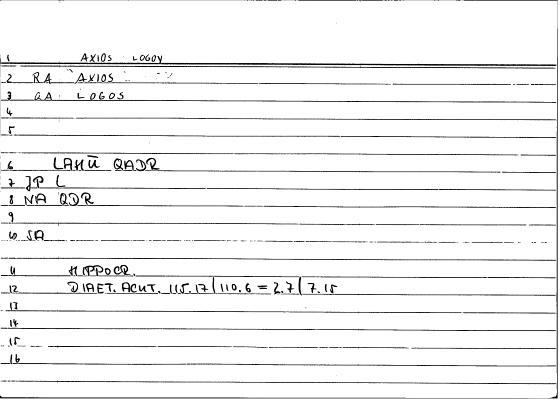 1 AXIOS LOGOY
2 RA AXIOS
3 GA LOGOS
4
5
6 LAHŪ QADR
7 JP L
8 NA QDR
9
10 SA
11 HIPPOCR.
12 DIAET. ACUT. 115.17 | 110.6 = 2.7 | 7.15
13
14
15
16